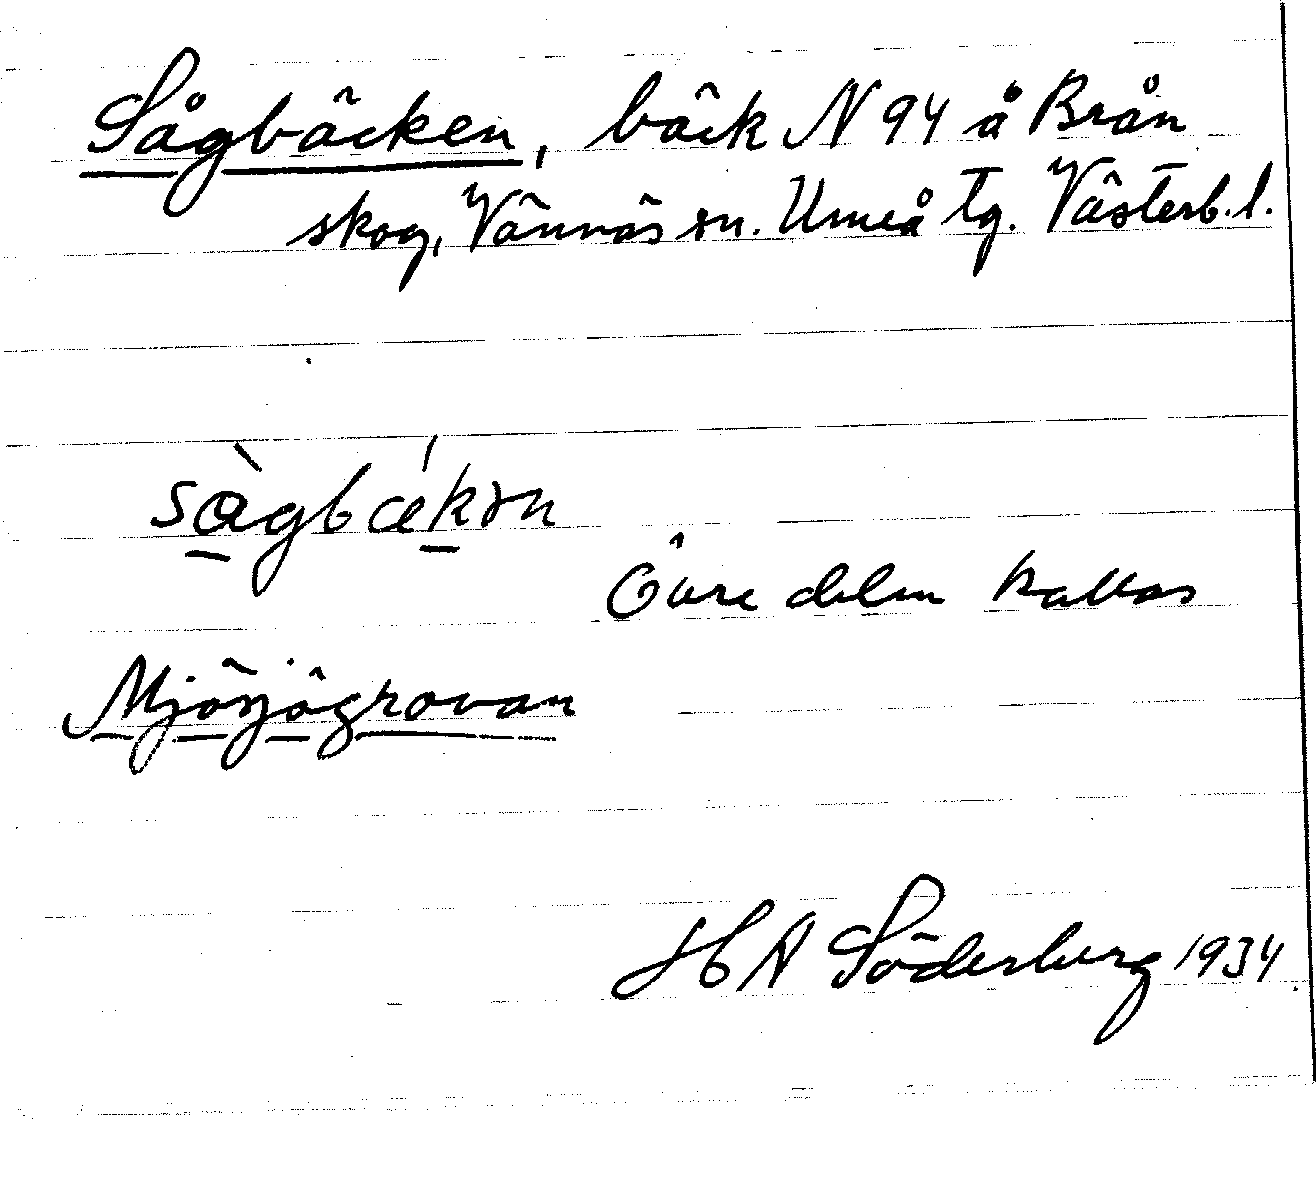 Sågbäcken, bäck N 94 å Brån
skog, Vännäs sn. Umeå tg. Västerb. l.
sàgbǽkən
Övre delen kallas
Mjösjögrovan
H A Söderberg 1934